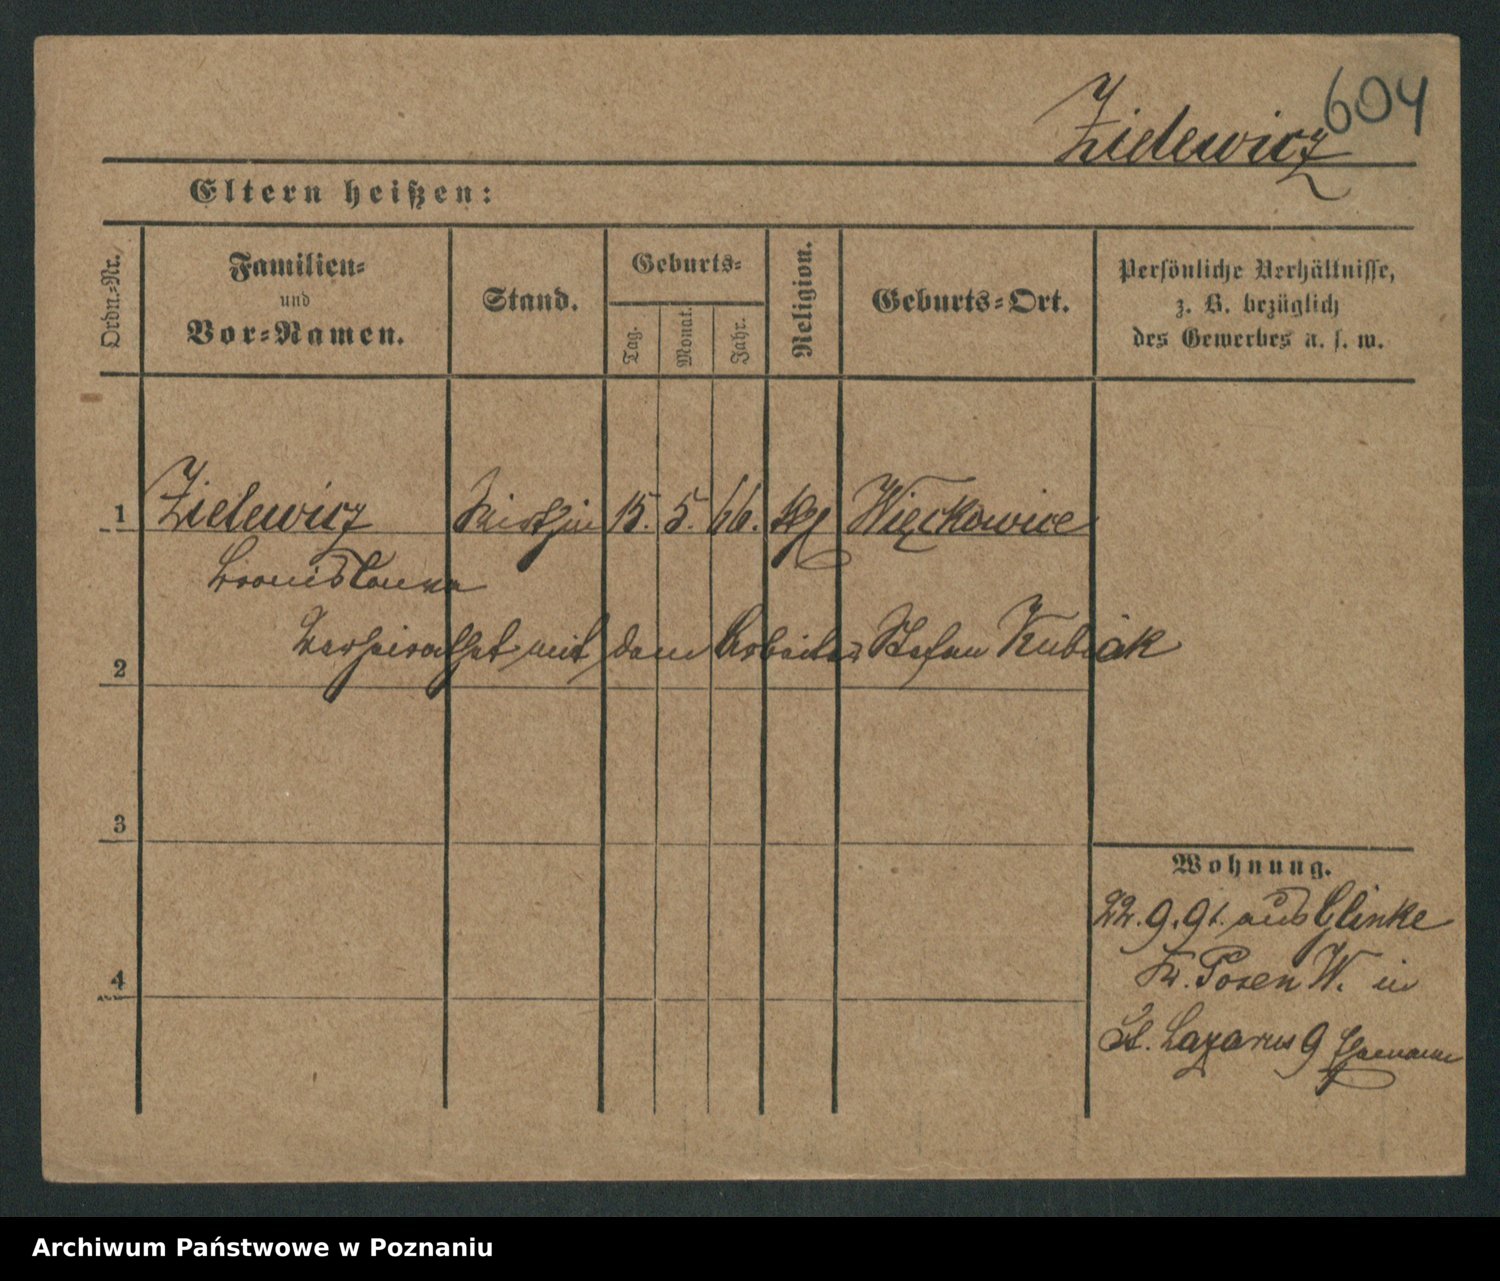 604
Zielewicz
Eltern heißen:
Ordn.-Nr.
Familien-
und
Vor-Namen.
Stand.
Geburts-
Tag.
Monat.
Jahr.
Religion.
Geburts-Ort.
Persönliche Verhältnisse,
z. B. bezüglich
des Gewerbes u. s. w.
1 Zielewicz 15. 5. 66. Więckowice
Bronislawa
Verheirathet mit dem Arbeiter Stefan Kubiak
2
3
4
Wohnung.
22.9.91. aus Glinke
Kr. Posen W. in
St. Lazarus 9
Archiwum Państwowe w Poznaniu